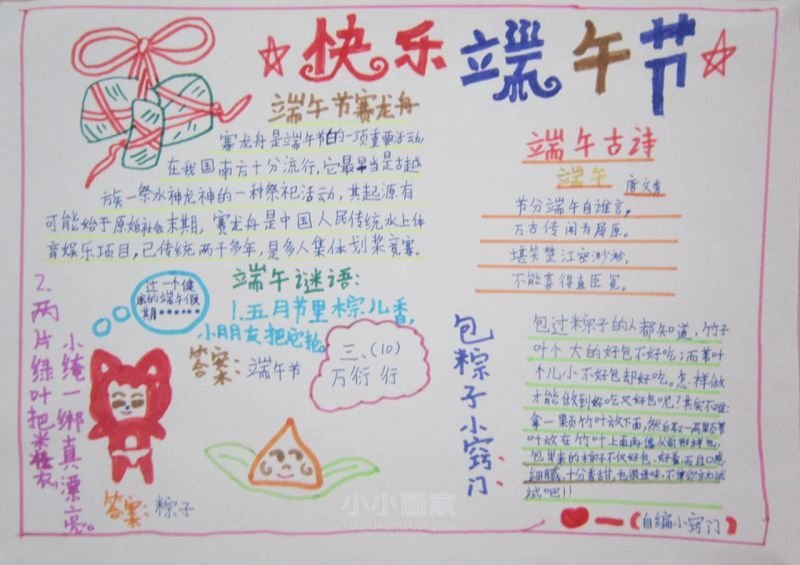 快乐端午节
端午节赛龙舟
赛龙舟是端午节的一项重要活动,
在我国南方十分流行,它最早当是古越
族一祭水神龙神的一种祭祀活动,其起源有
可能始于原始社会末期,赛龙舟是中国人民传统水上体
育娱乐项目,已传统两千多年,是多人集体划桨竞赛.
端午古诗
端午
唐文秀
节分端午自谁言,
万古传闻为屈原。
堪笑楚江空渺渺,
不能
直臣冤。
过一个健
康的端午假
期
端午谜语:
1.五月节里棕儿香,
小朋友把它
答案:端午节
三、(10)
万衍行
2.两片绿叶把米
小绳一绑真漂亮。
答案:粽子
包粽子小窍门:
包过粽子的人都知道,竹子
叶个大的好包不好吃;而苇叶
个儿小不好包却好吃。怎样做
才能做到好吃又好包呢?其实不难:
拿一颗竹叶放下面,然后取一两颗苇
叶放在竹叶上面再像从前那样包.
包出来的粽子不仅好包、好看,而且口感
细腻,十分香甜,也很
试吧!!
一(自编小窍门)
小小画家
XIAOXIAOHUAJIA.COM